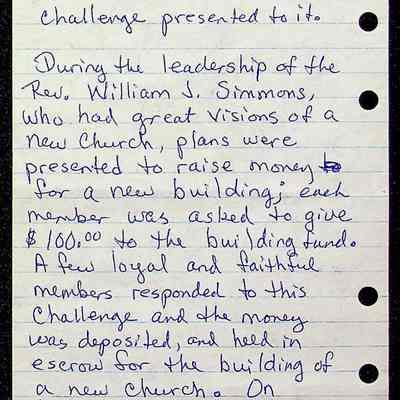 challenge presented to it.
During the leadership of the
Rev. William J. Simmons,
who had great visions of a
new Church, plans were
presented to raise money to
for a new building; each
member was asked to give
$100.00 to the building fund.
A few loyal and faithful
members responded to this
Challenge and the money
was deposited, and held in
escrow for the building of
a new church. On